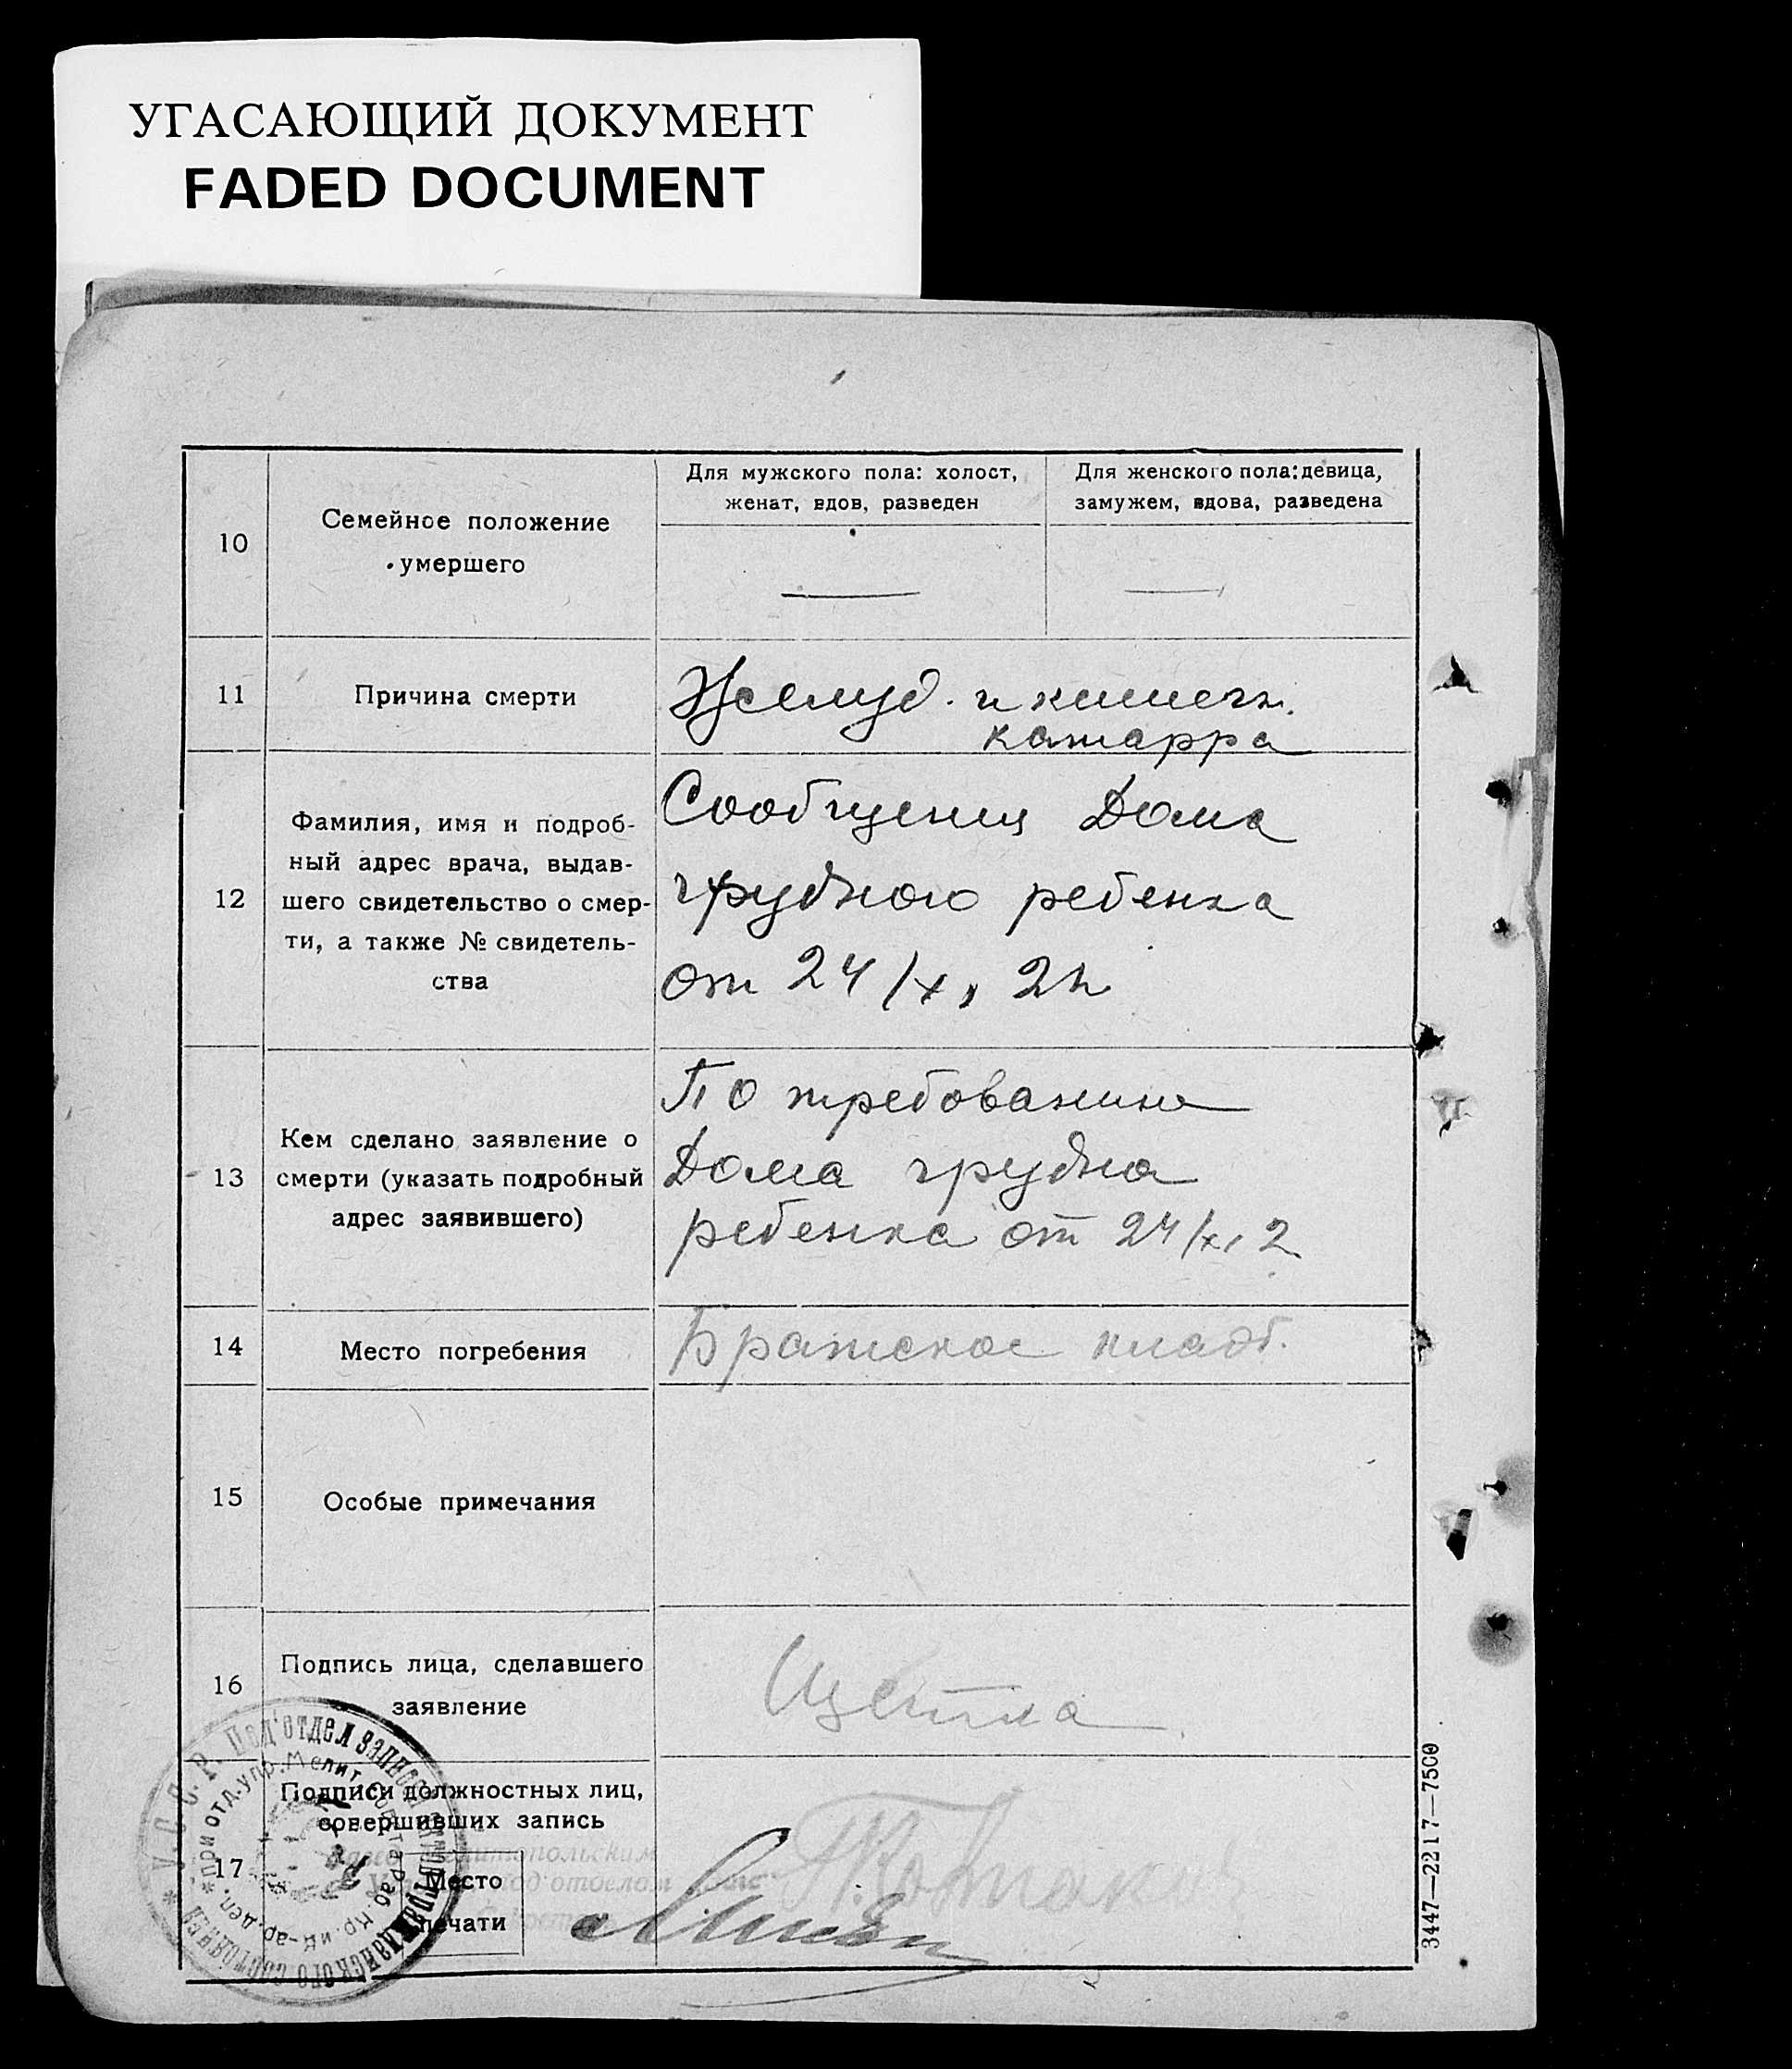 УГАСАЮЩИЙ ДОКУМЕНТ
FADED DOCUMENT
10
Семейное положение
умершего
Для мужского пола: холост,
женат, вдов, разведен
Для женского пола: девица,
замужем, вдова, разведена
11
Причина смерти
Желуд. и кишечн.
катарра
12
Фамилия, имя и подроб-
ный адрес врача, выдав-
шего свидетельство о смер-
ти, а также № свидетель-
ства
Сообщения Дома
грудного ребенка
от 24/X
13
Кем сделано заявление о
смерти (указать подробный
адрес заявившего)
По требованию
Дома грудно
ребенка от 24/X
14
Место погребения
Братское кладб.
15
Особые примечания
16
Подпись лица, сделавшего
заявление
17
Подписи должностных лиц,
совершивших запись
Место
печати
У.С.С.Р. Под'отдел записей актов гражданского состояния
при отд. упр. Мелит.
3447—2217—7500